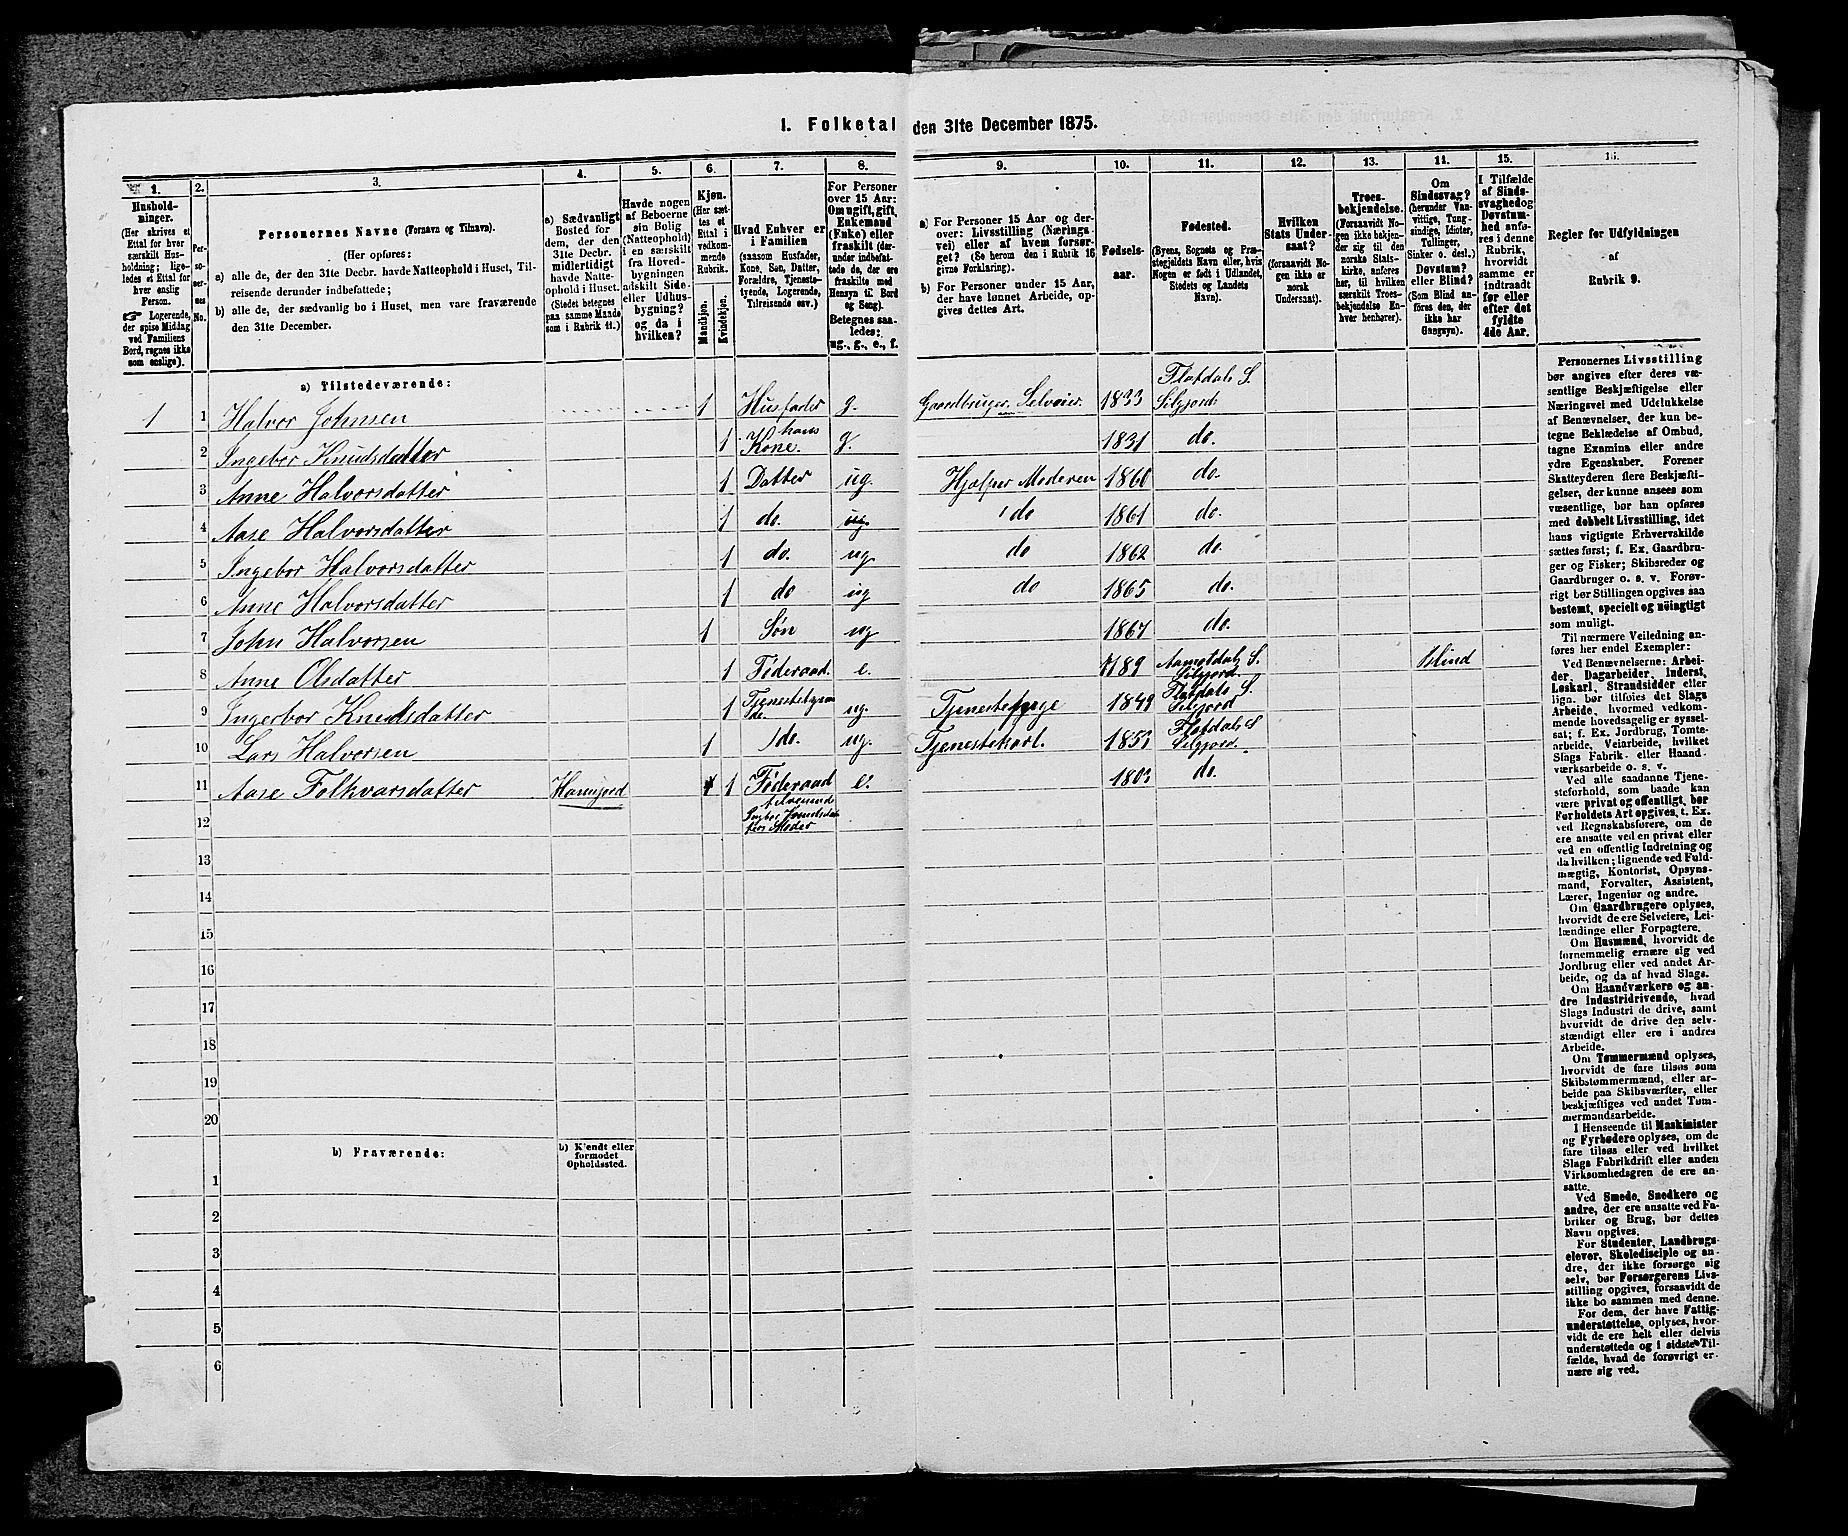 1. Folketal den 31te December 1875.
1.
2.
3.
4.
5.
6.
7.
8.
9.
10.
11.
12.
13.
14.
15.
16.
Hushold-
ninger.
(Her skrives et
Ettal for hver
særskilt Hus-
holdning; lige-
ledes et Ettal for
hver enslig
Person.
☞ Logerende,
der spise Middag
ved Familiens
Bord, regnes ikke
som enslige).
Per-
so-
ner-
nes
No.
Personernes Navne (Fornavn og Tilnavn).
(Her opføres:
a) alle de, der den 31te Decbr. havde Natteophold i Huset, Til-
reisende derunder indbefattede;
b) alle de, der sædvanlig bo i Huset, men vare fraværende
den 31te December.
a) Sædvanligt
Bosted for
dem, der den
31te Decbr.
midlertidigt
havde Natte-
ophold i Huset.
(Stedet betegnes
paa samme Maade
som i Rubrik 11.)
Havde nogen
af Beboerne
sin Bolig
(Natteophold)
i en særskilt
fra Hoved-
bygningen
adskilt Side-
eller Udhus-
bygning?
og da i
hvilken?
Kjøn.
(Her sæt-
tes et
Ettal i
vedkom-
mende
Rubrik.
Mandkjøn.
Kvindekjøn.
Hvad Enhver er
i Familien
(saasom Husfader,
Kone, Søn, Datter,
Forældre, Tjeneste-
tyende, Logerende,
Tilreisende osv.)
For Personer
over 15 Aar:
Om ugift, gift,
Enkemand
(Enke) eller
fraskilt (der-
under indbefat-
tede de, der ere
fraskilte med
Hensyn til Bord
og Seng).
Betegnes saa-
ledes:
ug., g., e., f.
a) For Personer 15 Aar og der-
over: Livsstilling (Nærings-
vei) eller af hvem forsør-
get? (Se herom den i Rubrik 16
givne Forklaring).
b) For Personer under 15 Aar,
der have lønnet Arbeide, op-
gives dettes Art.
Fødsels-
aar.
Fødested.
(Byens, Sognets og Præ-
stegjeldets Navn eller, hvis
Nogen er født i Udlandet,
Stedets og Landets
Navn).
Hvilken
Stats Under-
saat?
(forsaavidt No-
gen ikke er
norsk
Undersaat).
Troes-
bekjendelse.
(Forsaavidt No-
gen ikke bekjen-
der sig til den
norske Stats-
kirke, anføres
her, til hvilken
særskilt Troes-
bekjendelse En-
hver henhører).
Om
Sindssvag?
(herunder Van-
vittige, Tung-
sindige, Idioter,
Tullinger,
Sinker o. desl.)
Døvstum?
eller Blind?
(Som Blind an-
føres den, der
ikke har
Gangsyn).
I Tilfælde
af Sinds-
svaghed og
Døvstum-
hed anfø-
res i denne
Rubrik,
hvorvidt
samme er
indtraadt
før eller
efter det
fyldte
4de Aar.
Regler for Udfyldningen
af
Rubrik 9.
a) Tilstedeværende:
1 1 Halvor Johnsen 1 Husfader g. Gaardbruger Selveier. 1833 Flatdals S. Siljord
2 Ingebor Knudsdatter 1 hans Kone. g. 1831 do.
3 Anne Halvorsdatter 1 Datter ug. Hjælper Moderen 1860 do.
4 Aase Halvorsdatter 1 do. ug. do 1861 do.
5 Ingebor Halvorsdatter 1 do. ug do 1862 do.
6 Anne Halvorsdatter 1 do ug do 1865 do.
7 John Halvorsen 1 Søn ug 1867 do.
8 Anne Olsdatter 1 Føderaad. e. Aamotdals S. Siljord. Blind
9 Ingerbor Knudsdatter 1 ug. Tjenestepige 1849 Flatdals S. Siljord
10 Lars Halvorsen 1 do. ug. Tjenestekarl. 1853 Flatdals S Siljord.
11 Aase Folkvarsdatter 1 Føderaad e. 1803 do.
12 Ingbor Knudsdatters Moder
13
14
15
16
17
18
19
20
b) Fraværende:
b) Kjendt eller
formodet
Opholdssted.
1
2
3
4
5
6
Personernes Livsstilling
bør angives efter deres væ-
sentlige Beskjæftigelse eller
Næringsvei med Udelukkelse
af Benævnelser, der kun be-
tegne Beklædelse af Ombud,
tagne Examina eller andre
ydre Egenskaber. Forener
Skatteyderen flere Beskjæfti-
gelser, der kunne ansees som
væsentlige, bør han opføres
med dobbelt Livsstilling, idet
hans vigtigste Erhvervskilde
sættes først; f. Ex. Gaardbru-
ger og Fisker; Skibsreder og
Gaardbruger o. s. v. Forøv-
rigt bør Stillingen opgives saa
bestemt, specielt og nøiagtigt
som muligt.
Til nærmere Veiledning an-
føres her endel Exempler:
Ved Benævnelserne: Arbei-
der, Dagarbeider, Inderst,
Løskarl, Strandsidder eller
lign. bør tilføies det Slags
Arbeide, hvormed vedkom-
mende hovedsagelig er syssel-
sat; f. Ex. Jordbrug, Tomte-
arbeide, Veiarbeide, hvilket
Slags Fabrik- eller Haand-
værksarbeide o. s. v.
Ved alle saadanne Tjene-
steforhold, som baade kan
være privat og offentligt, bør
Forholdets Art opgives, t. Ex.
ved Regnskabsførere, om de
ere ansatte ved en privat eller
ved en offentlig Indretning og
da hvilken; lignende ved Fuld-
mægtig, Kontorist, Opsyns-
mand, Forvalter, Assistent,
Lærer, Ingeniør og andre.
Om Gaardbrugere oplyses,
hvorvidt de ere Selveiere, Lei-
lændinge eller Forpagtere.
Om Husmænd, hvorvidt de
fornemmelig ernære sig ved
Jordbrug eller ved andet Ar-
beide, og da af hvad Slags.
Om Haandværkere og an-
dre Industridrivende, hvad
Slags Industri de drive, samt
hvorvidt de drive den selv-
stændigt eller ere i andres
Arbeide.
Om Tømmermænd oplyses,
hvorvidt de fare tilsøs som
Skibstømmermænd, eller ar-
beide paa Skibsværfter, eller
beskjæftiges ved andet Tøm-
mermandsarbeide.
I Henseende til Maskinister
og Fyrbødere oplyses, om de
fare tilsøs eller ved hvilket
Slags Fabrikdrift eller anden
Virksomhedsgren de ere an-
satte.
Ved Smede, Snedkere og
andre, der ere ansatte ved Fa-
briker og Brug, bør dettes
Navn opgives.
For Studenter, Landbrugs-
elever, Skoledisciple og an-
dre, der ikke forsørge sig
selv, bør Forsørgerens Livs-
stilling opgives, forsaavidt de
ikke bo sammen med denne.
For dem, der have Fattig-
understøttelse, oplyses, hvor-
vidt de ere helt eller delvis
understøttede og i sidste Til-
fælde, hvad de forøvrigt er-
nære sig ved.